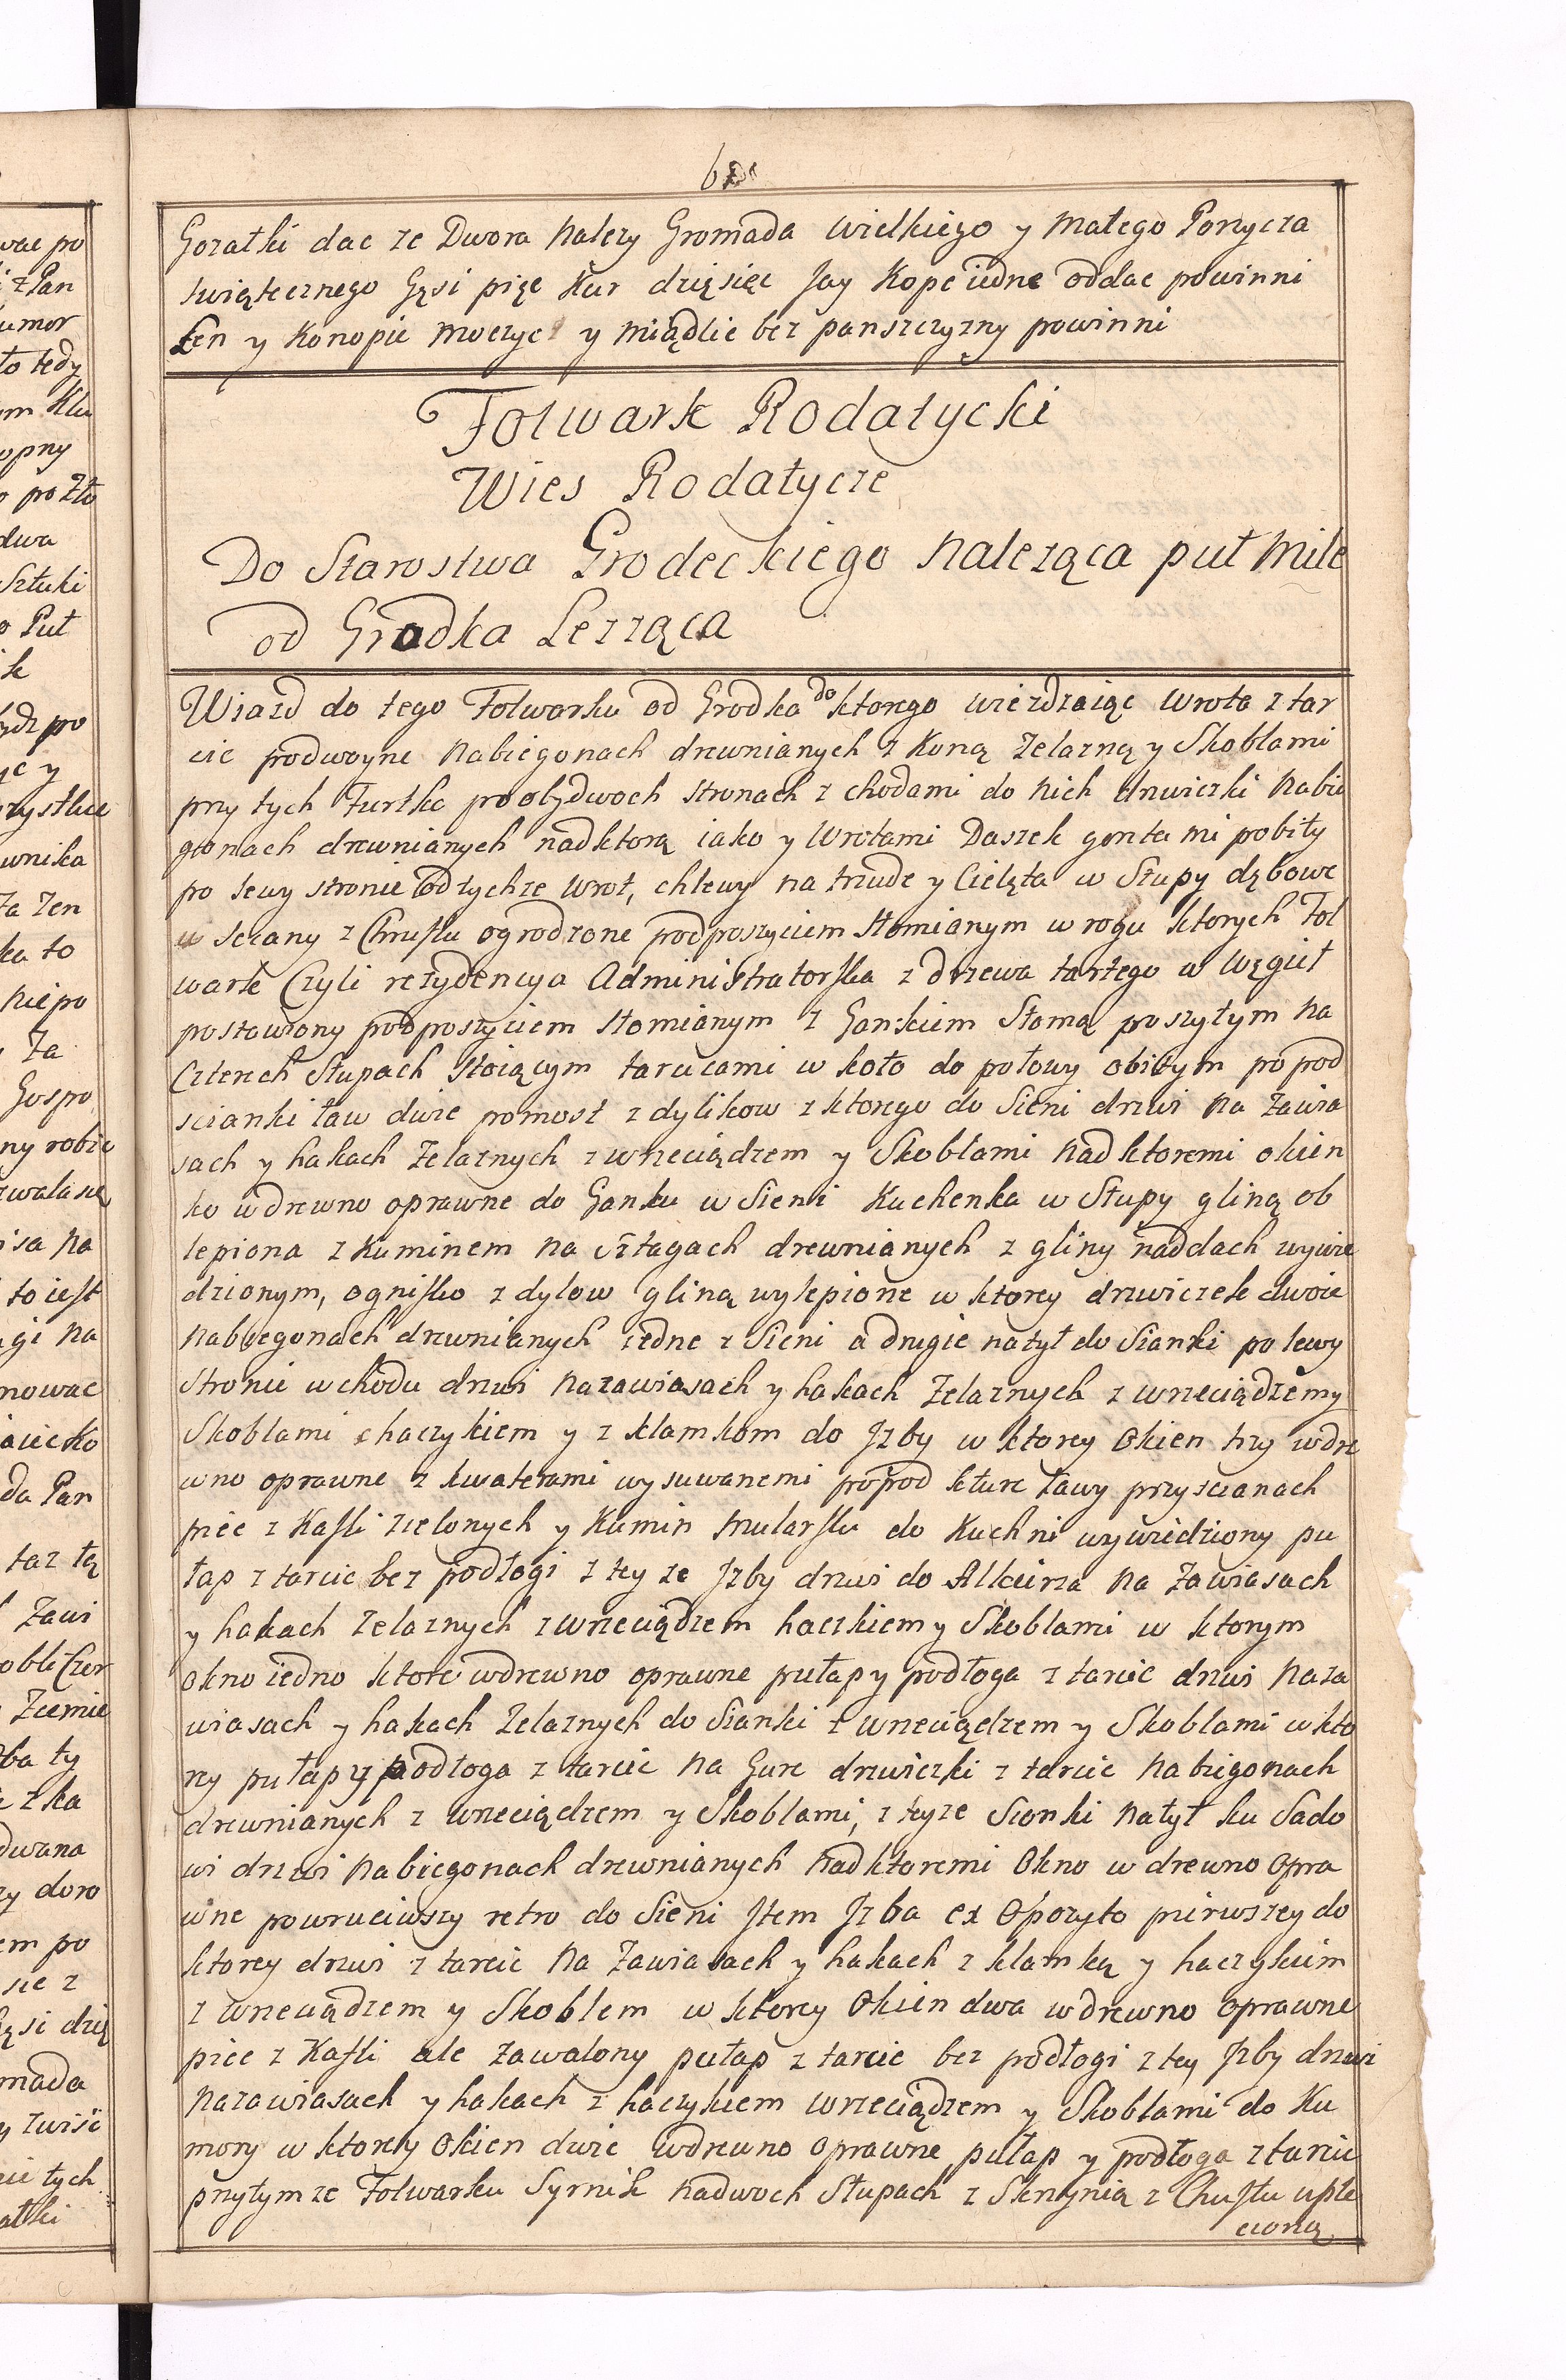 Gorałki dac ze Dwora nalezy Gromada wielkiego y małego Porzycza
swiątecznego Gęsi pięc Kur dzięsięc Jay Kope iedne oddac powinni
Len y Konopie moczyc y miądlic bez panszczyzny powinni
Folwark Rodatycki
Wies Rodatycze
Do Starostwa Grodeckiego nalezząca puł mile
od Grodka Lezząca
Wiazd do tego Folwarku od Grodka do ktorego wiezdzaiąc wrota z tar
cic podwoyne nabiegonach drewnianych z Koną zelazną y Skoblami
przy tych Furtke po obydwoch stronach z chodami do nich drwiczki nabie
gonach drewnianych nad ktorą iako y Wrotami Daszek gontami pobity
po lewy stronie od tychze wrot, chlewy na trzude y Cielęta w Słupy dębowe
w sciany z Chrustu ogrodzone pod poszyciem słomianym w rogu ktorych Fol
wark Czyli rezydencya Administratorska z drzewa tartego w Węgieł
postawiony pod poszyciem słomianym z Gankiem Słomą poszytym na
Czterech Słupach stoiącym tarcicami w koło do połowy obitym popod
scianki ław dwie pomost z dylikow z ktorego do Sieni drzwi na zawia
sach y hakach Zelaznych z wrzeciądzem y Skoblami nad ktoremi okien
ko w drewno oprawne do Ganku w Sieni Kuchenka w Słupy gliną ob
lepiona z Kuminem na sztagach drewnianych z gliny nad dach wywie
dzionym, ognisko z dylow gliną wylepione w ktorey drzwiczek dwoie
nabiegonach drewnianych iedne z Sieni a drugie natył do Sianki po lewy
stronie wchodu drzwi nazawiasach y hakach Zelaznych z wrzeciądzem y
Skoblami haczykiem y z klamkom do Jzby w ktorey Okien trzy w dre
wno oprawne z kwaterami wysuwanemi popod kture ławy przy scianach
piec z Kafli zielonych y Kumin mularsku do Kuchni wywiedziony pu
łap z tarcic bez podłogi z tey ze Jzby drzwi do Alkierza na zawiasach
y hakach zelaznych z wrzeciądzem haczkiem y Skoblami w ktorym
okno iedno ktore wdrewno oprawne pułap y podłoga z tarcic drzwi naza
wiasach y hakach Zelaznych do Sianki z wrzeciądzem y Skoblami w kto
rey pułap y podłoga z tarcic na Gure drzwiczki z tarcic nabiegonach
drewnianych z wrzeciądzem y Skoblami, z teyze Sionki natył ku Sado
wi drzwi nabiegonach drewnianych nad ktoremi Okno w drewno opra
wne powruciwszy retro do Sieni Jtem Jzba ex Opozyto pierwszey do
ktorey drzwi z tarcic na zawiasach y hakach z klamką y haczykiem
z wrzeciądzem y Skoblem w ktorey Okien dwa w drewno oprawne
piec z Kafli ale zawalony pułap z tarcic bez podłogi z tey Jzby drzwi
nazawiasach y hakach z haczykiem wrzeciądzem y Skoblami do Ku
mory w ktorey Okien dwie wdrewno oprawne pułap y podłoga z tarcic
przytym ze Folwarku Syrnik nadwoch Słupach z Skrzynią z Chustu uple
cioną